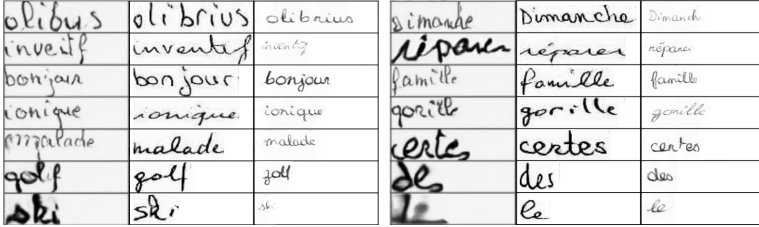 olibus olibrius olibrius
inveitf inventif inventif
bonjour bonjour bonjour
ionique ionique ionique
malade malade
golf golf golf
ski ski ski
Dimanche Dimanch
réparer réparer réparer
famille famille famille
gorille gorille gorille
certes certes certes
des des des
le le